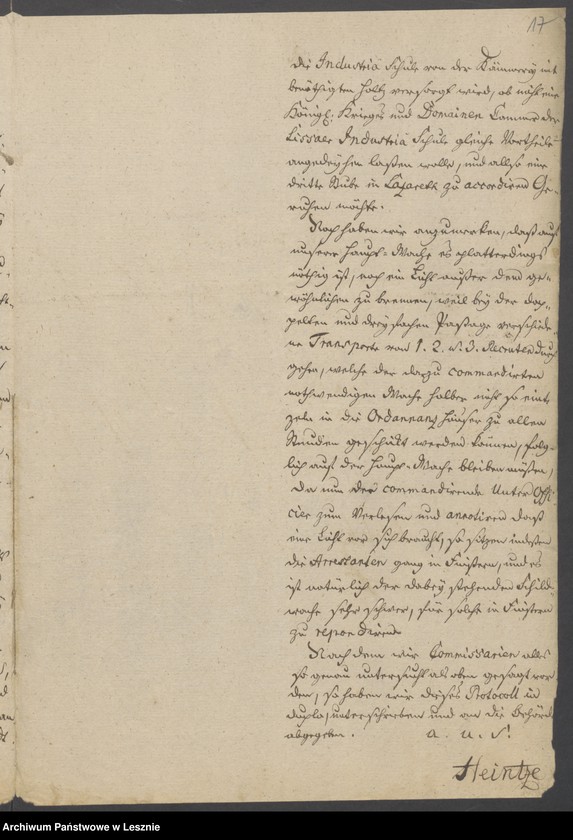 17
die Industrie Schule von der Kämmerey mit
benöthigten Holtz versorgt wird, ob nicht eine
Königl: Krieges und Domainen Cammer der
Lissaer Industrie Schule gleiche Vortheile
angedeyhen lassen wolle, und allso eine
dritte Stube in Lazareth zu accordiren Ge-
ruhen möchte.
Noch haben wir anzumerken, daß auf
unserer Haupt-Wache es platterdings
nöthig ist, noch ein Licht außer dem ge-
wöhnlichen zu brennen, weil bey der dop-
pelten und dreyfachen Passage verschiede-
ne Transporte von 1. 2. u. 3. Recruten durch
gehen, welche der dazu commandirten
nothwendigen Wache halber nicht so eint
zeln in die Ordonnanz Häuser zu allen
Stunden geschickt werden können, folg-
lich auf der Haupt-Wache bleiben müßen,
da nun der commandirende Unter Offi
cier zum Verlesen und annotiren daß
eine Licht vor sich braucht, so sitzen indessen
die Arrestanten gantz in Finstern, und es
ist natürlich der dabey stehenden Schild-
wache sehr schwer, für solche in Finstern
zu repondiren.
Nach dem wir Commissarien alles
so genau untersucht als oben gesagt wor
den, so haben wir dieses Protocoll in
duplo, unterschrieben und an die Behörde
abgegeben. a. u. s.
Heintze
Archiwum Państwowe w Lesznie